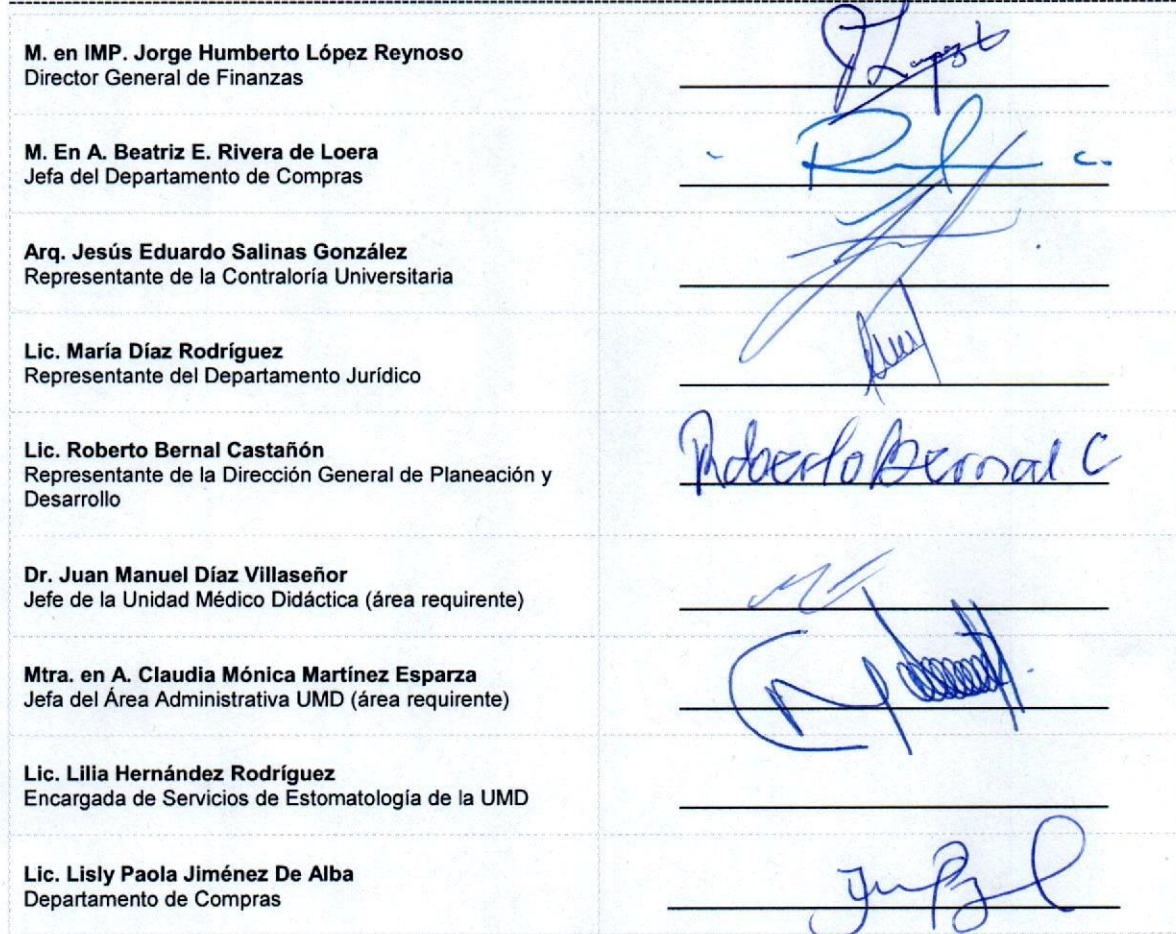 M. en IMP. Jorge Humberto López Reynoso
Director General de Finanzas
M. En A. Beatriz E. Rivera de Loera
Jefa del Departamento de Compras
Arq. Jesús Eduardo Salinas González
Representante de la Contraloría Universitaria
Lic. María Díaz Rodríguez
Representante del Departamento Jurídico
Lic. Roberto Bernal Castañón
Representante de la Dirección General de Planeación y
Desarrollo
Roberto Bernal C
Dr. Juan Manuel Díaz Villaseñor
Jefe de la Unidad Médico Didáctica (área requirente)
Mtra. en A. Claudia Mónica Martínez Esparza
Jefa del Área Administrativa UMD (área requirente)
Lic. Lilia Hernández Rodríguez
Encargada de Servicios de Estomatología de la UMD
Lic. Lisly Paola Jiménez De Alba
Departamento de Compras